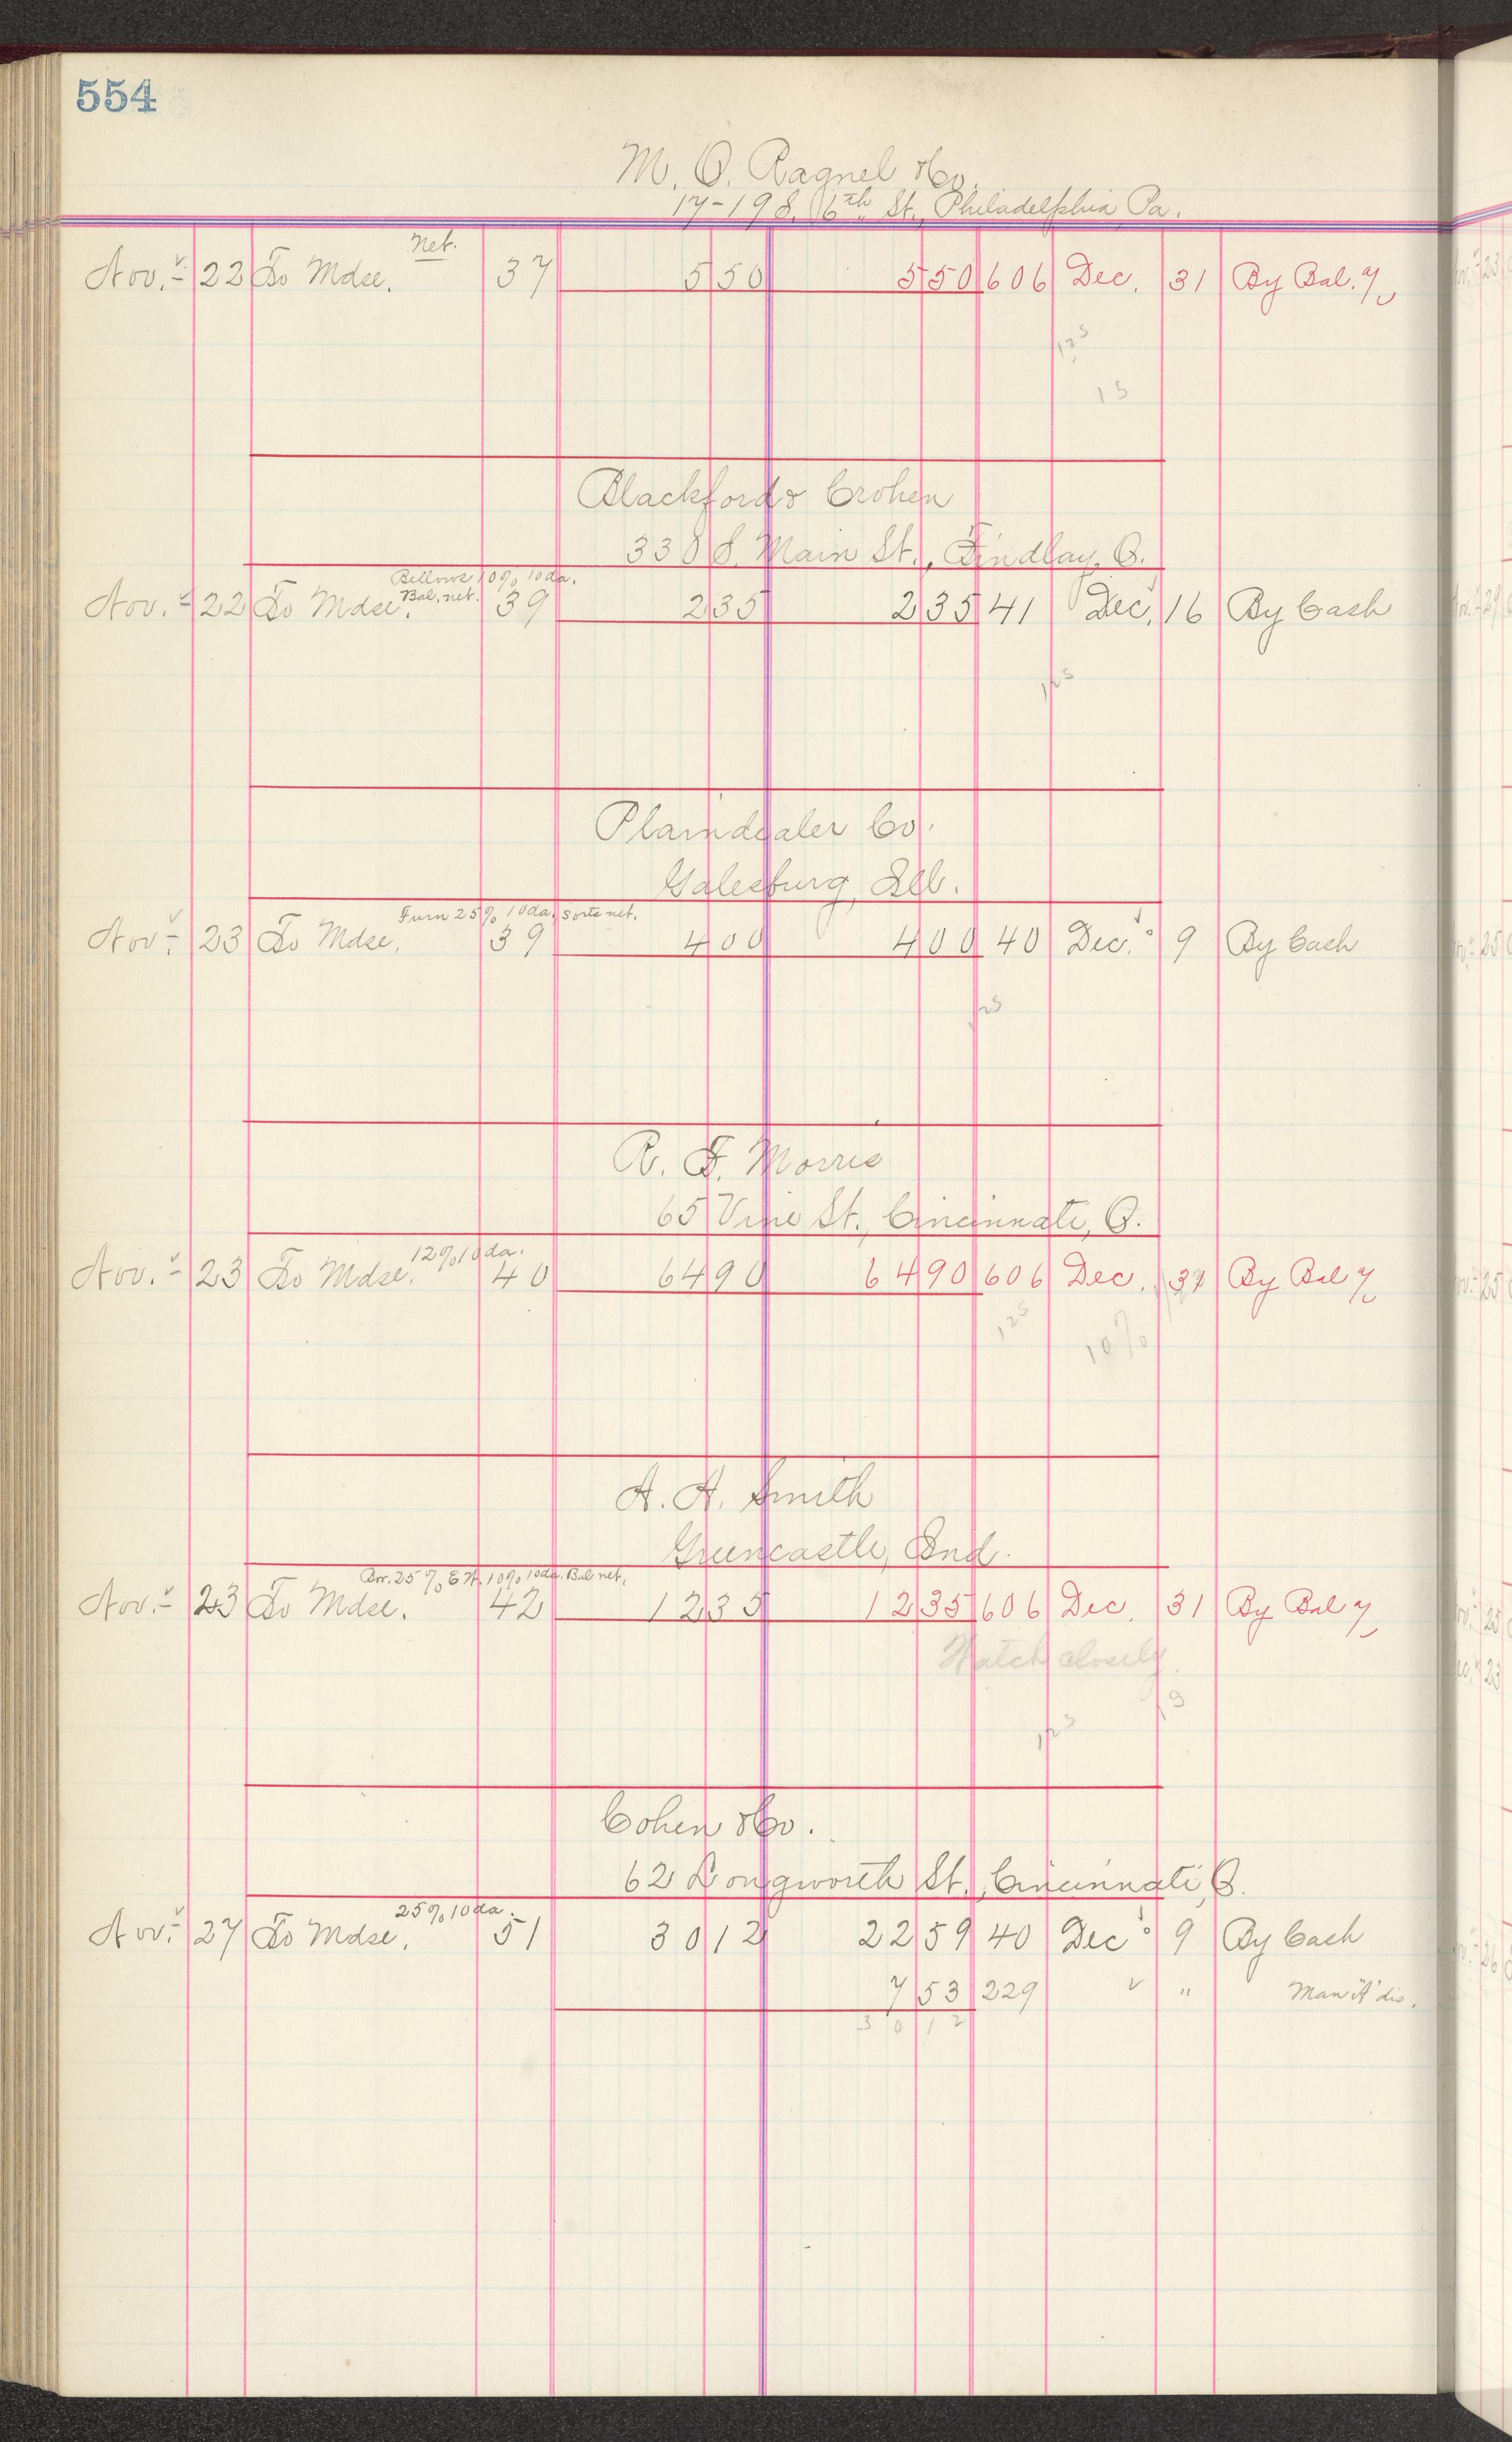 554
M. O. Ragnel & Co.
17-19 S. 6th St., Philadelphia Pa.
Net.
Nov. 22 To Mdse. 37 5 50 5 50 606 Dec. 31 By Bal. %
125
15
Blackford & Crohen
338 S. Main St., Findlay, O.
Bellows 10% 10 da.
Bal. net.
Nov. 22 To Mdse. 39 2 35 2 35 41 Dec. 16 By Cash
125
Plaindealer Co.
Galesburg, Ill.
Furn 25% 10 da. Sorts net.
Nov. 23 To Mdse. 39 4 00 4 00 40 Dec. 9 By Cash
125
R. F. Morris
65 Vine St., Cincinnati, O.
12% 10 da.
Nov. 23 To Mdse. 40 64 90 64 90 606 Dec. 31 By Bal %
125
10%
A. A. Smith
Greencastle, Ind.
25% 10% 10 da. Bal net.
Nov. 23 To Mdse. 42 12 35 12 35 606 Dec. 31 By Bal %
Watch closely.
125
Cohen & Co.
62 Longworth St., Cincinnati, O.
25% 10 da.
Nov. 27 To Mdse. 51 30 12 22 59 40 Dec 9 By Cash
7 53 229 " Man "A" dis.
30 12